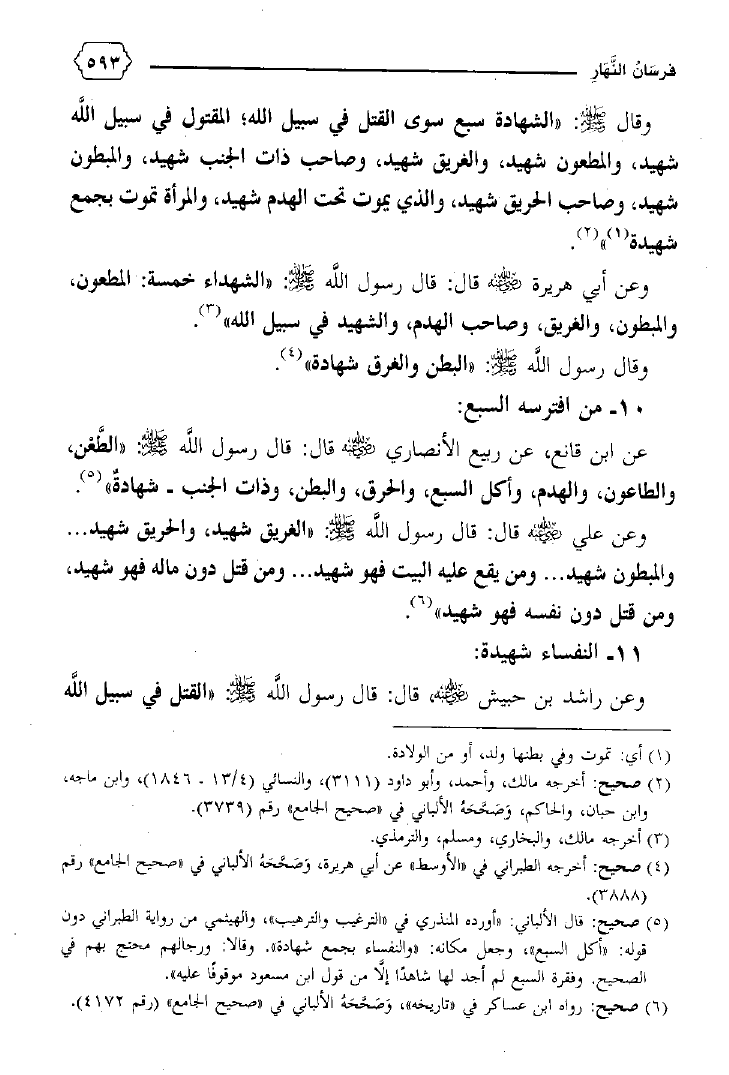 فرسَانُ النَّهَارِ
٥٩٣
وقال ﷺ: «الشهادة سبع سوى القتل في سبيل الله؛ المقتول في سبيل الله
شهيد، والمطعون شهيد، والغريق شهيد، وصاحب ذات الجنب شهيد، والمبطون
شهيد، وصاحب الحريق شهيد، والذي يموت تحت الهدم شهيد، والمرأة تموت بجمع
شهيدة(١)»(٢).
وعن أبي هريرة رضي الله عنه قال: قال رسول اللَّه ﷺ: «الشهداء خمسة: المطعون،
والمبطون، والغريق، وصاحب الهدم، والشهيد في سبيل الله»(٣).
وقال رسول اللَّه ﷺ: «البطن والغرق شهادة»(٤).
١٠ـ من افترسه السبع:
عن ابن قانع، عن ربيع الأنصاري رضي الله عنه قال: قال رسول اللَّه ﷺ: «الطَّعْن،
والطاعون، والهدم، وأكل السبع، والحرق، والبطن، وذات الجنب ـ شهادةٌ»(٥).
وعن علي رضي الله عنه قال: قال رسول اللَّه ﷺ: «الغريق شهيد، والحريق شهيد...
والمبطون شهيد... ومن يقع عليه البيت فهو شهيد... ومن قتل دون ماله فهو شهيد،
ومن قتل دون نفسه فهو شهيد»(٦).
١١ـ النفساء شهيدة:
وعن راشد بن حبيش رضي الله عنه، قال: قال رسول اللَّه ﷺ: «القتل في سبيل اللَّه
(١) أي: تموت وفي بطنها ولد، أو من الولادة.
(٢) صحيح: أخرجه مالك، وأحمد، وأبو داود (٣١١١)، والنسائي (١٣/٤ ـ ١٨٤٦)، وابن ماجه،
وابن حبان، والحاكم، وَصَحَّحَهُ الألباني في «صحيح الجامع» رقم (٣٧٣٩).
(٣) أخرجه مالك، والبخاري، ومسلم، والترمذي.
(٤) صحيح: أخرجه الطبراني في «الأوسط» عن أبي هريرة، وَصَحَّحَهُ الألباني في «صحيح الجامع» رقم
(٣٨٨٨).
(٥) صحيح: قال الألباني: «أورده المنذري في «الترغيب والترهيب»، والهيثمي من رواية الطبراني دون
قوله: «أكل السبع»، وجعل مكانه: «والنفساء بجمع شهادة». وقالا: ورجالهم محتج بهم في
الصحيح. وفقرة السبع لم أجد لها شاهدًا إلَّا من قول ابن مسعود موقوفًا عليه».
(٦) صحيح: رواه ابن عساكر في «تاريخه»، وَصَحَّحَهُ الألباني في «صحيح الجامع» (رقم ٤١٧٢).